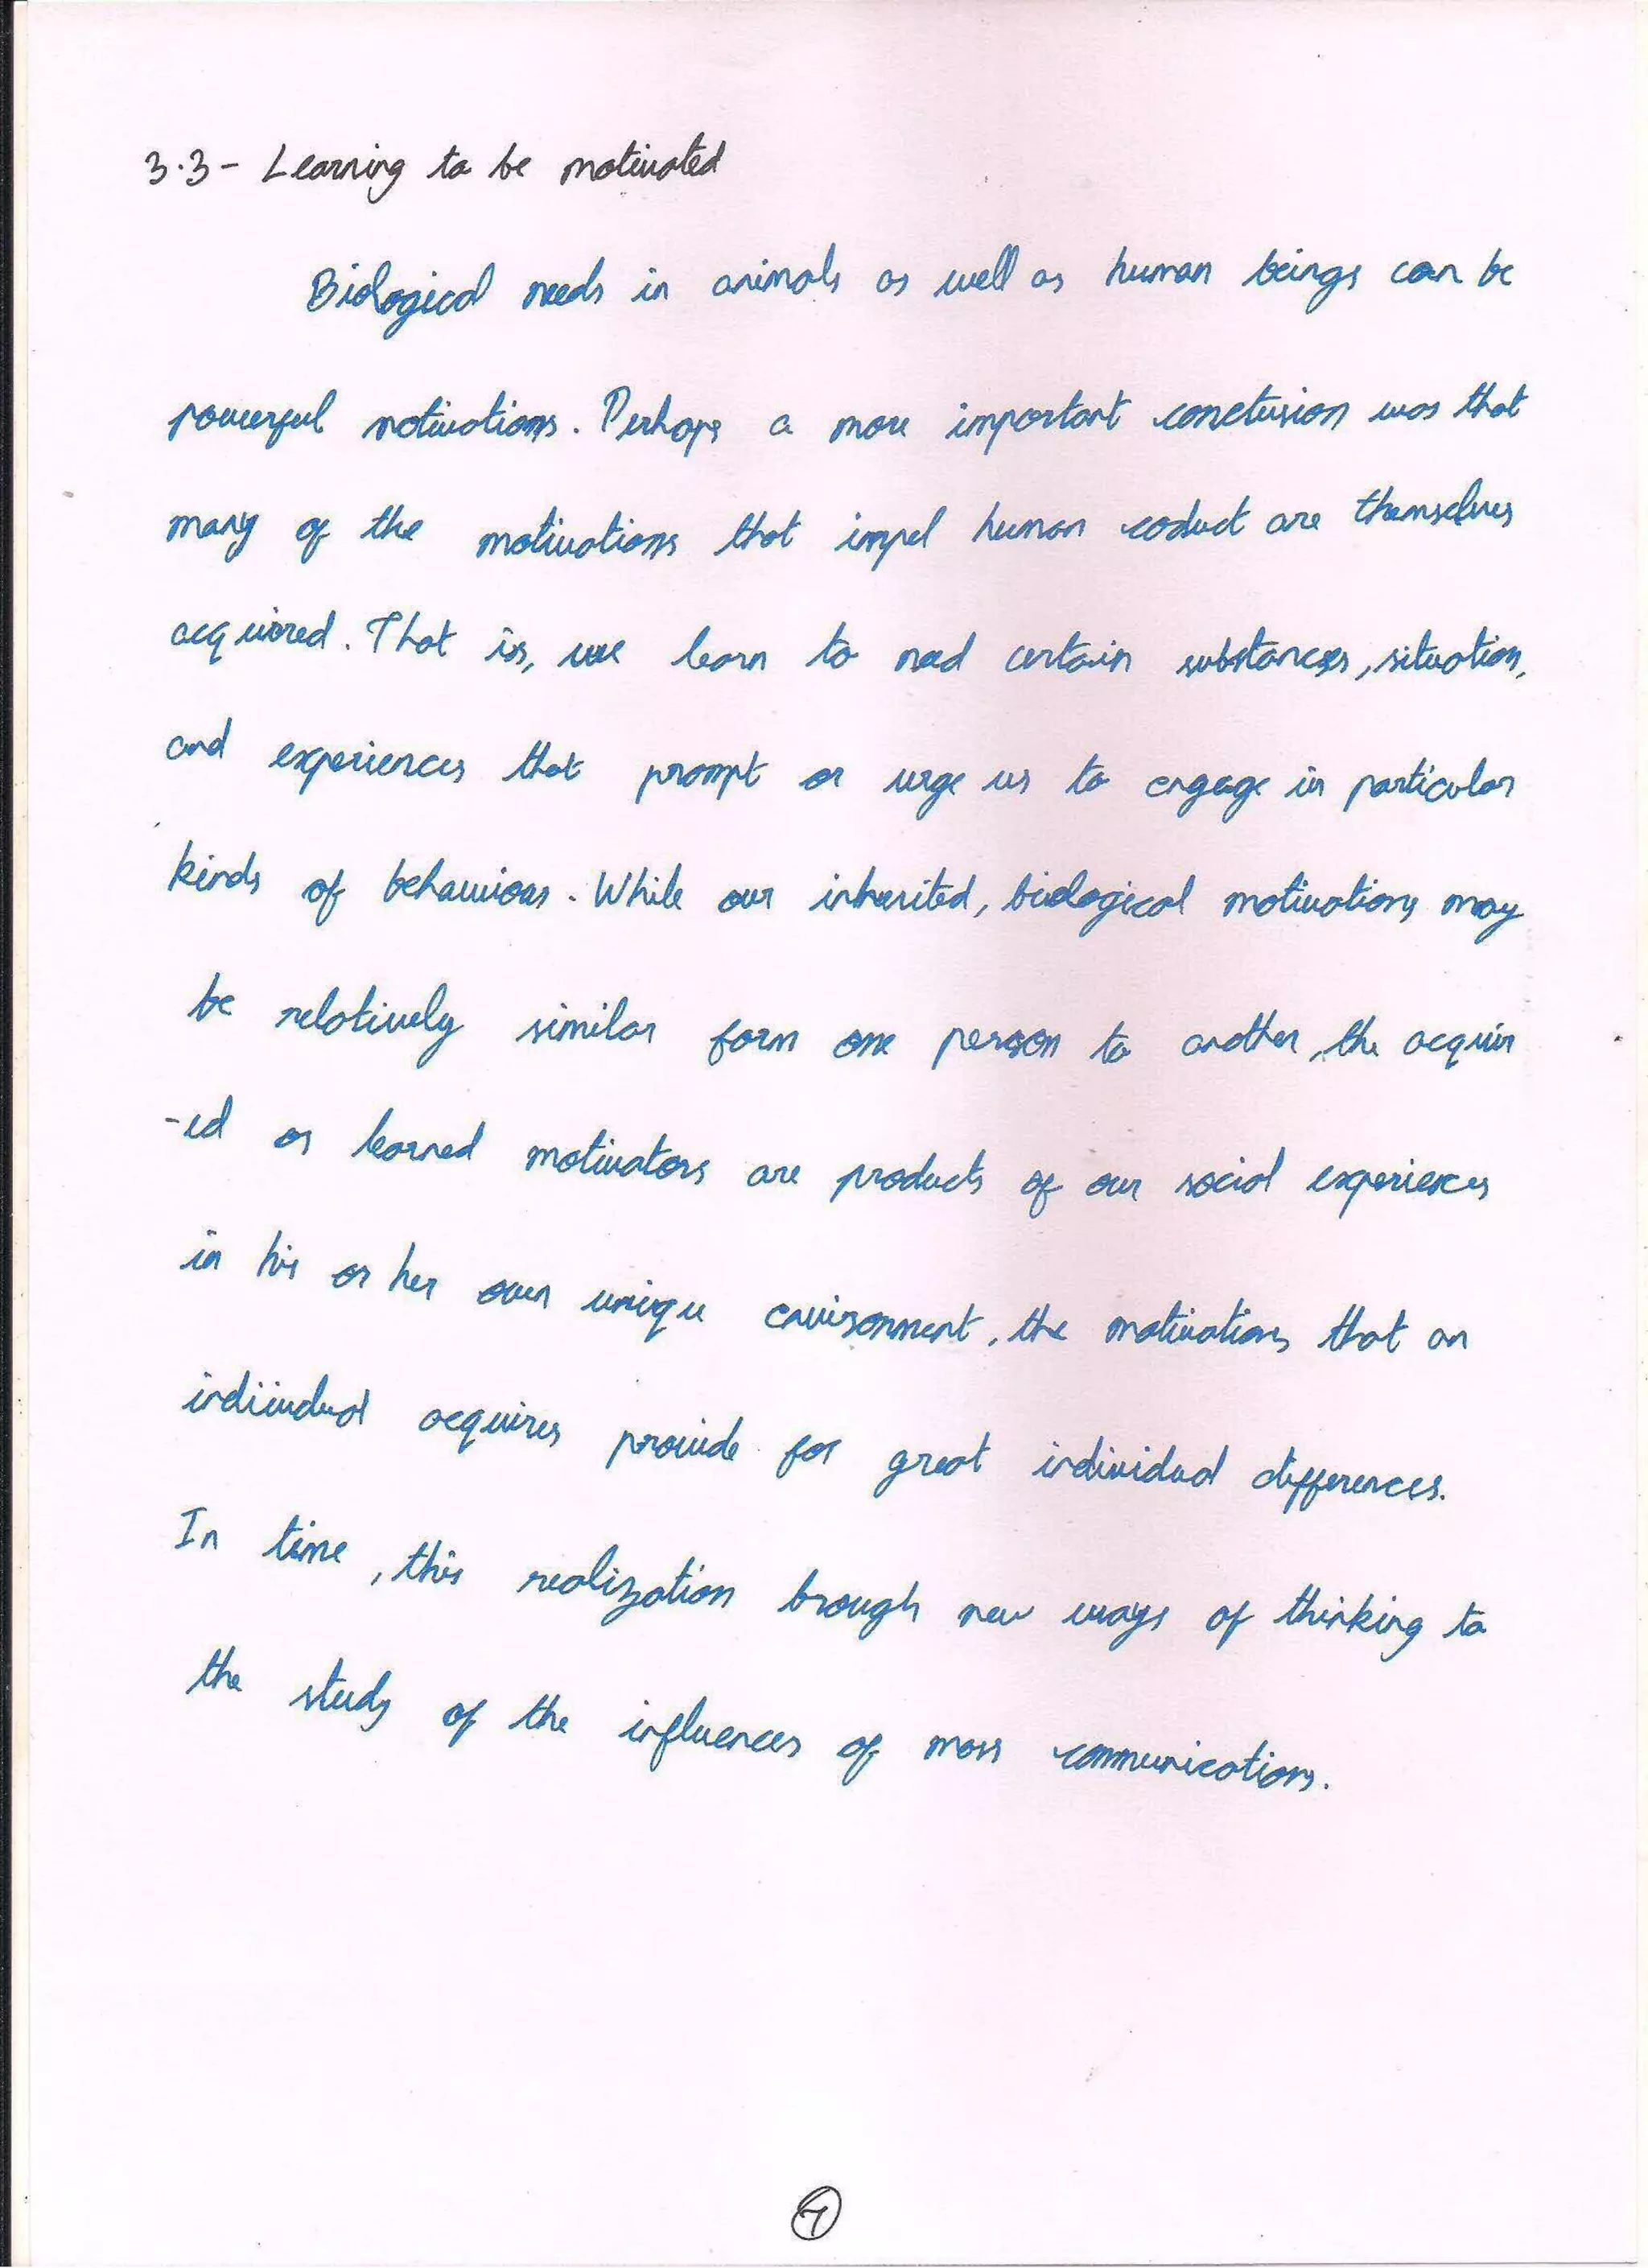 3.3- Learning to be motivated
Biological needs in animals as well as human beings can be
powerful motivations. Perhaps a more important conclusion was that
many of the motivations that impel human coduct are themselves
acquired. That is, we learn to need certain substances, situation,
and experiences that prompt or urge us to engage in particular
kinds of behauvioas. While our inherited, biological motivations may
be relatively similar form one person to another, the acquir
-ed or learned motivators are products of our social experiences
in his or her own unique environment, the motivations that an
individual acquires provide for great individual differences.
In time, this realization brough new ways of thinking to
the study of the influences of mass communications.
7